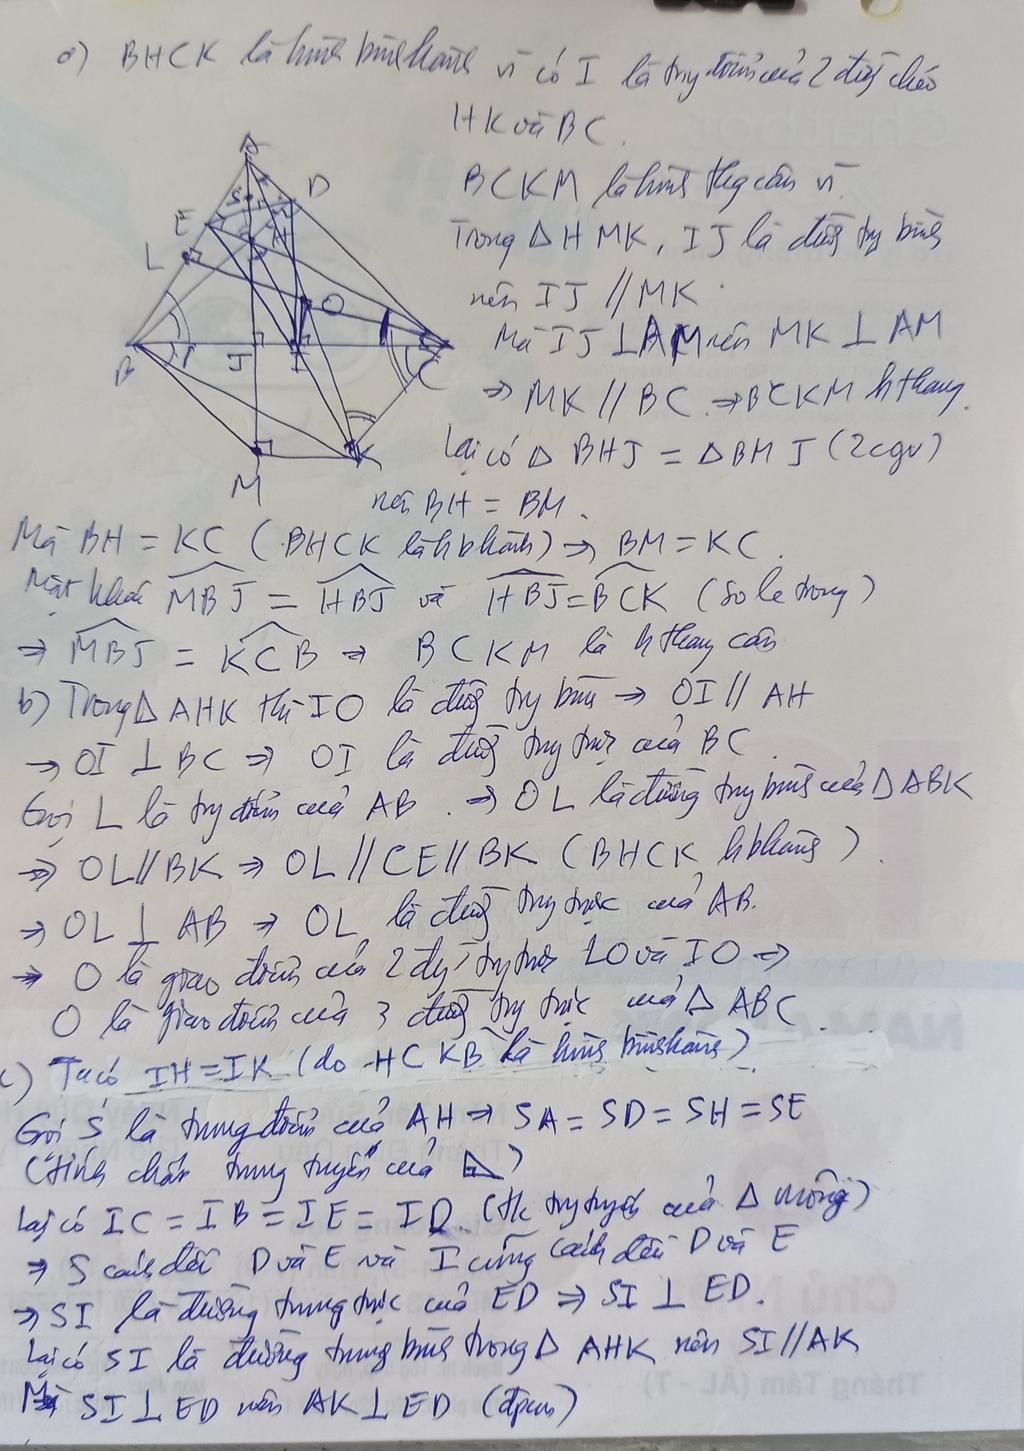 a) BHCK là hình bình hành vì có I là trung điểm của 2 đường chéo
HK và BC.
BCKM là hình thang cân vì
Trong Δ HMK, IJ là đường trung bình
nên IJ // MK.
Mà IJ ⊥ AM nên MK ⊥ AM
⇒ MK // BC ⇒ BCKM h thang.
Lại có Δ BHJ = Δ BMJ (2cgv)
nên BH = BM.
A
D
S
E
H
L
O
B
J
I
C
M
K
Mà BH = KC (BHCK là hbhành) ⇒ BM = KC.
Mặt khác MBJ = HBJ và HBJ = BCK (so le trong)
⇒ MBJ = KCB ⇒ BCKM là h thang cân
b) Trong Δ AHK thì IO là đường trung bình ⇒ OI // AH
⇒ OI ⊥ BC ⇒ OI là đường trung trực của BC.
Gọi L là trung điểm của AB. ⇒ OL là đường trung bình của Δ ABK
⇒ OL // BK ⇒ OL // CE // BK (BHCK hbhành).
⇒ OL ⊥ AB ⇒ OL là đường trung trực của AB.
⇒ O là giao điểm của 2 đg trung trực LO và IO ⇒
O là giao điểm của 3 đường trung trực của Δ ABC.
c) Ta có IH = IK (do HCKB là hình bình hành)
Gọi S là trung điểm của AH ⇒ SA = SD = SH = SE
(tính chất trung tuyến của Δ)
Lại có IC = IB = IE = ID. (tc trung tuyến của Δ vuông)
⇒ S cách đều D và E và I cũng cách đều D và E
⇒ SI là đường trung trực của ED ⇒ SI ⊥ ED.
Lại có SI là đường trung bình trong Δ AHK nên SI // AK
Mà SI ⊥ ED nên AK ⊥ ED (đpcm)
Tháng Tám (ÂL - T)